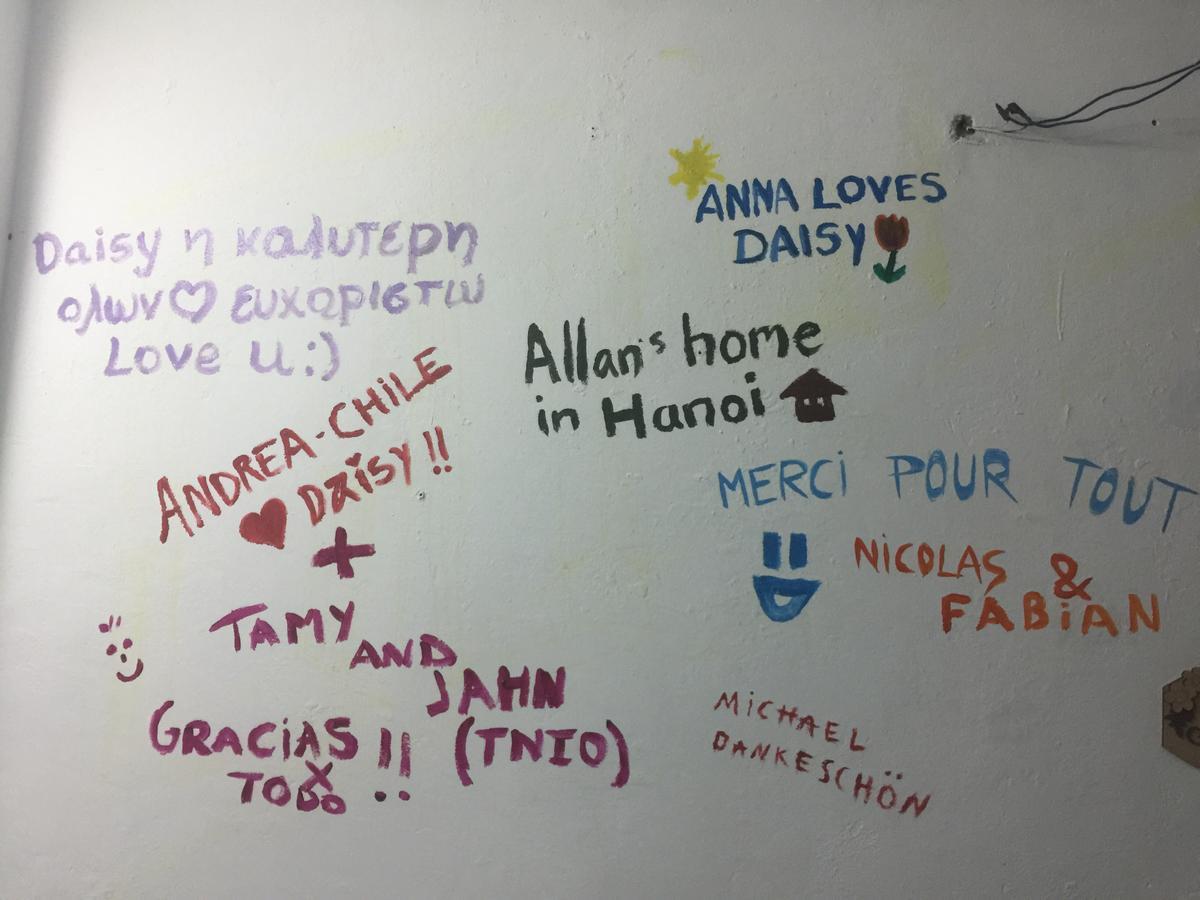 Daisy η καλυτερη
ολων♡ ευχαριστω
Love u:)
ANNA LOVES
DAISY
Allan's home
in Hanoi
ANDREA-CHiLE
♥ DAiSY!!
+
TAMY AND
JAHN
(TNIO)
GRACiAS !!
X
TODO
MERCi POUR TOUT
NiCOLAS &
FABiAN
MiCHAEL
DANKESCHÖN